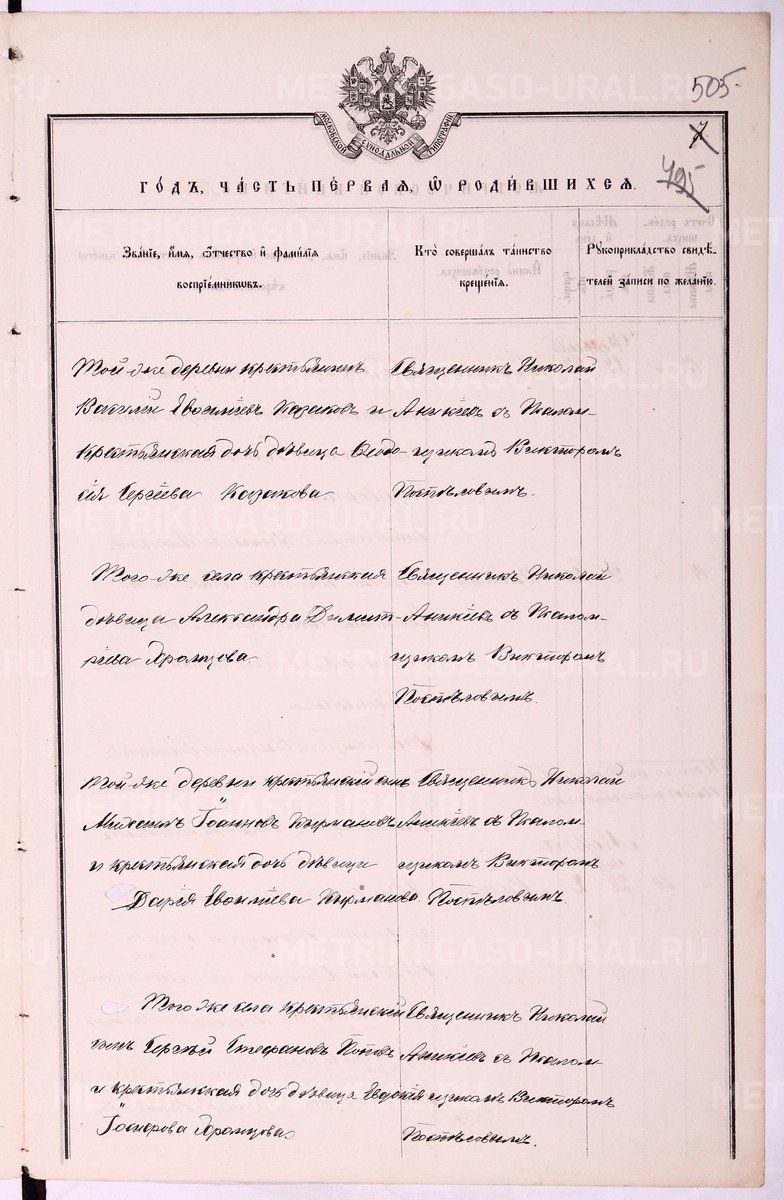 505.
7
495
МОСКОВСКОЙ СѴНОДАЛЬНОЙ ТИПОГРАФІИ
ГОДЪ, ЧАСТЬ ПЕРВАЯ, Ѡ РОДИВШИХСЯ.
Званіе, имя, отчество и фамилія
воспріемниковъ.
Кто совершалъ таинство
крещенія.
Рукоприкладство свидѣ-
телей записи по желанію.
Той-же деревни крестьянинъ
Василій Евфиміевъ Казаковъ и
крестьянская дочь дѣвица Ѳеодо-
сія Сергіева Казакова.
Священникъ Николай
Аникіевъ съ Псалом-
щикомъ Викторомъ
Поспѣловымъ.
Того-же села крестьянская
дѣвица Александра Димит-
ріева Хромцова.
Священникъ Николай
Аникіевъ съ Псалом-
щикомъ Викторомъ
Поспѣловымъ.
Той-же деревни крестьянскій сынъ
Михаилъ Іоанновъ
и крестьянская дочь дѣвица
Дарія
Священникъ Николай
Аникіевъ съ Псалом
щикомъ Викторомъ
Поспѣловымъ.
Того же села крестьянскій
сынъ Сергѣй Стефановъ Поповъ
и крестьянская дочь дѣвица Евдокія
Хромцова
Священникъ Николай
Аникіевъ съ Псалом
щикомъ Викторомъ
Поспѣловымъ.
METRIKI.GASO-URAL.RU